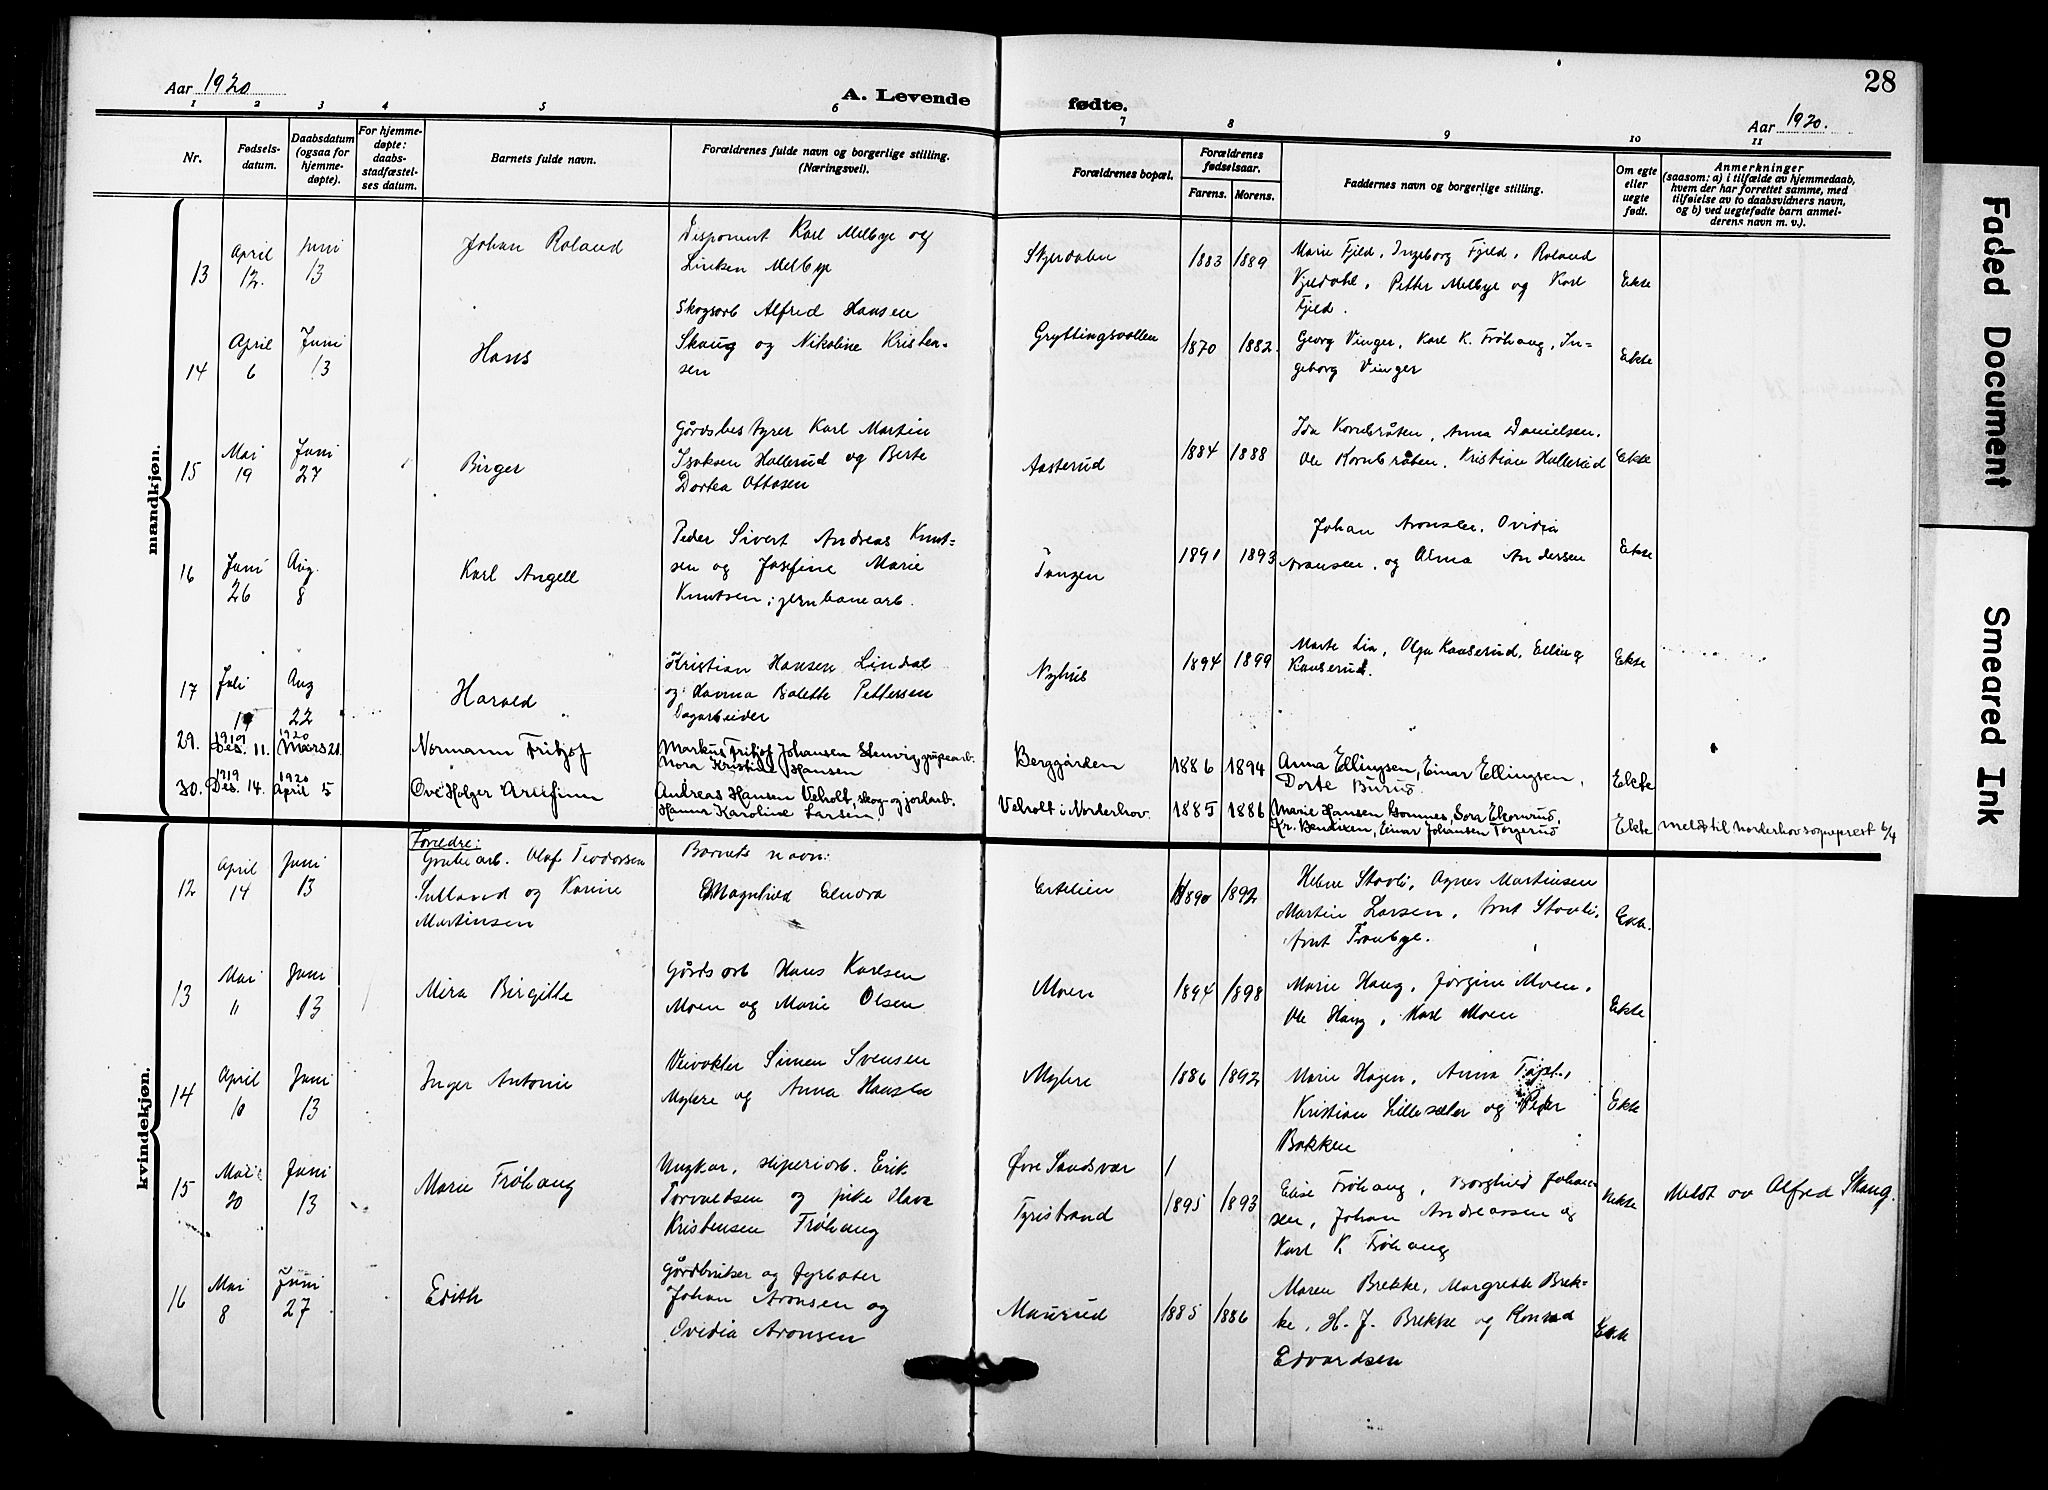 28
Aar 1920
A. Levende fødte.
Aar 1920.
1 2 3 4 5 6 7 8 9 10 11
Nr.
Fødsels-
datum.
Daabsdatum
(ogsaa for
hjemme-
døpte).
For hjemme-
døpte:
daabs-
stadfæstel-
ses datum.
Barnets fulde navn.
Forældrenes fulde navn og borgerlige stilling.
(Næringsvei).
Forældrenes bopæl.
Forældrenes
fødselsaar.
Farens. Morens.
Faddernes navn og borgerlige stilling.
Om egte
eller
uegte
født.
Anmerkninger
(saasom: a) i tilfælde av hjemmedaab,
hvem der har forrettet samme, med
tilføielse av to daabsvidners navn,
og b) ved uegtefødte barn anmel-
derens navn m. v.).
mandkjøn.
13
April
12.
Juni
13
Johan Roland
Disponent Karl Melbye og
Melbye
1883 1889
Marie Fjeld, Ingeborg Fjeld, Roland
Petter Melbye og Karl
Fjeld.
Ekte
14
April
6
Juni
13
Hans
Skogsarb Alfred Hansen
Skaug og Nikoline Kristen-
sen
Gryttingsvollen
1870 1882.
Georg Vinger, Karl K. Frøhaug, In-
geborg Vinger
Ekte
15
Mai
19
Juni
27
Birger
Gårdsbestyrer Karl Martin
Isaksen Hallerud og Berte
Dortea Ottosen
Aasterud
1884 1888
Ida Kornbråten, Anna Danielsen,
Ole Kornbråten, Kristian Hallerud
Ekte
16
Juni
26
Aug.
8
Karl Angell
Peder Sivert Andreas Knut-
sen og Josefine Marie
Knutsen, jernbanearb.
Tangen
1891 1893
Johan Aronsen, Ovidia
Aronsen, og Alma Andersen
Ekte
17
Juli
19
Aug
22
Harald
Kristian Hansen Lindal
og Balette Pettersen
Dagarbeider
Nyhus
1894 1899
Marte Lia, Olga Kauserud, Elling
Kauserud.
Ekte
29.
1919
Des. 11.
1920
Mars 21.
Normann Fritjof
Markus Fritjof Johansen Stenvig, grubearb.
Nora Kristine Hansen
Berggården
1886 1894
Anna Ellingsen, Einar Ellingsen,
Dorte Burud.
Ekte
30.
1919
Des. 14.
1920
April 5
Ove Holger
Andreas Hansen Veholt, skog og jordarb.
Hanna Karoline Larsen
Veholt i Norderhov.
1885 1886
Marie Hansen Sora Ekornrud,
Kr. Bendixen, Einar Johansen Torgerud
Ekte
meldt til Norderhov sogneprest 6/4
kvindekjøn.
12
April
14
Juni
13
Foreldre:
Grubearb. Olaf Teodorsen
og Karine
Martinsen
Barnets navn:
Magnhild Elnora
Ertelien
1890 1892
Helene Stovli, Agnes Martinsen
Martin Larsen, Arnt Stovli,
Arnt Tronbye.
Ekte.
13
Mai
11
Juni
13
Mira Birgitte
Gårdsarb Hans Karlsen
Moen og Marie Olsen
Moen
1894 1898
Marie Haug, Jørgine Moen,
Ole Haug, Karl Moen
Ekte
14
April
10
Juni
13
Inger Antonie
Veivokter Simen Svensen
Mylere og Anna Hansen
Mylere
1886 1892
Marie Hagen, Anna
Kristian Lillesæter og Peder
Bakken
Ekte
15
Mai
20
Juni
13
Marie Frøhaug
Ungkar, sliperiarb. Erik
Torvaldsen og pike Olava
Kristensen Frøhaug
Øvre Sandsvær
Tyristrand
1895 1893
Elise Frøhaug, Borghild Johan-
sen, Johan Andreassen og
Karl K. Frøhaug
Uekte
Meldt av Alfred Skaug.
16
Mai
8
Juni
27
Edith
Gårdbruker og fyrbøter
Johan Aronsen og
Ovidia Aronsen
Maurud
1885 1886
Maren Brekke, Margrethe Brek-
ke, H. J. Brekke og Konrad
Edvardsen
Ekte
Faded Document
Smeared Ink